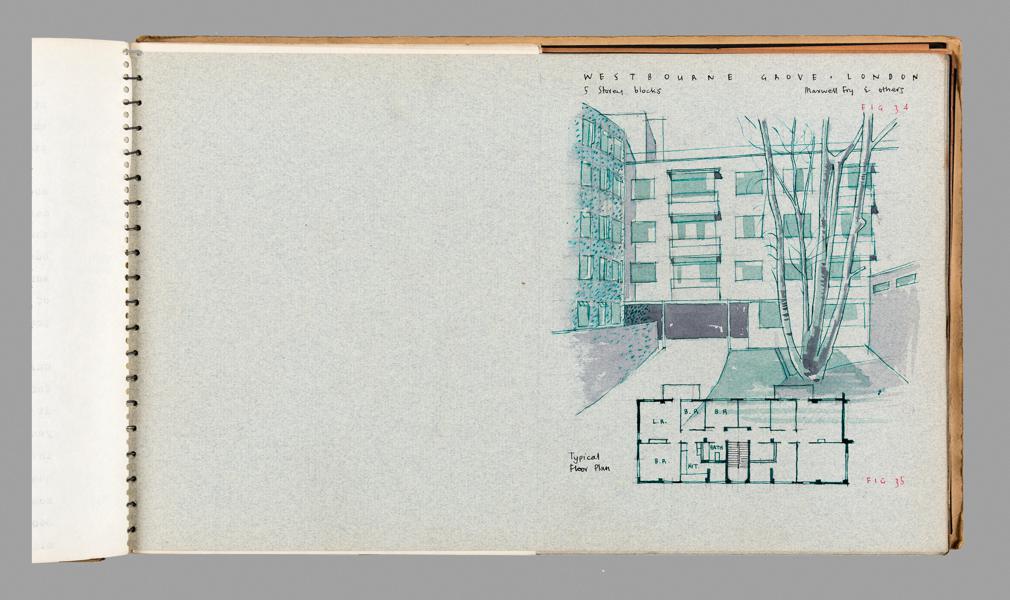 WESTBOURNE GROVE · LONDON
5 Storey blocks Maxwell Fry & others
FIG 34
L.R. B.R. B.R.
BATH
B.R. KIT.
Typical
Floor Plan
FIG 35